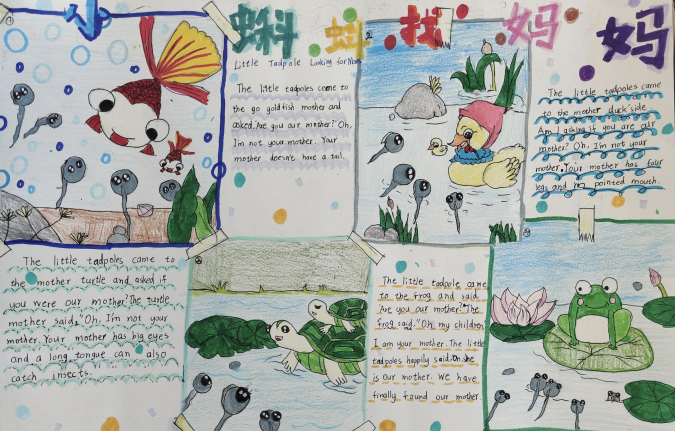 小蝌蚪找妈妈
Little Tadpole Looking for Mom
①
The little tadpoles came to
the go goldfish mother and
asked. Are you our mother? Oh,
I'm not your mother. Your
mother doesn't have a tail.
2
The little tadpoles came
to the mother duck'side
Am I asking if you are our
mother? Oh. I'm not your
mother. Your mother has four
legs and no pointed mouth.
The little tadpoles came to
the mother turtle and asked if
you were our mother. The turtle
mother said," Oh, I'm not your
mother. Your mother has big eyes
and a long tongue can also
catch insects.
The little tadpole came
to the frog and said
Are you our mother?" The
frog said." Oh, my children
I am your mother. The little
tadpoles happily said. Oh she
is our mother. We have
finally found our mother.